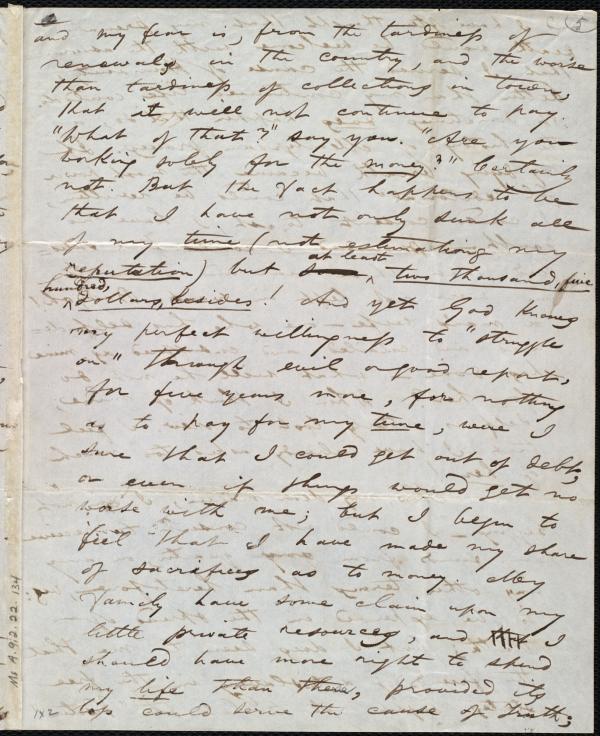 5
and my fear is, from the tardiness of
renewals in the country, and the worse
than tardiness of collections in town,
that it will not continue to pay.
"What of that?" say you. "Are you
working solely for the money?" Certainly
not. But the fact happens to be
that I have not only sunk all
of my time (not estimating my
at least
reputation) but two thousand, five
hundred,
dollars, besides! And yet God knows
my perfect willingness to "struggle
on" through evil or good report,
for five years more, for nothing
as to pay for my time, were I
sure that I could get out of debt,
or even if things would get no
worse with me; but I begin to
feel that I have made my share
of sacrifices as to money. My
family have some claim upon my
little private resources, and I
should have more right to spend
my life than theirs, provided its
loss could serve the cause of truth;
Ms A.9.2.22.134
1x2